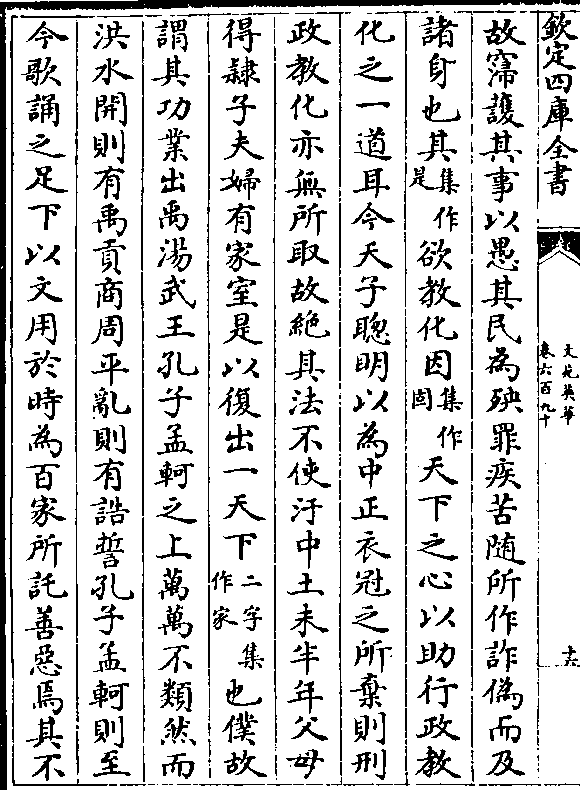 欽定四庫全書
文苑英華
卷六百九十
十六
故窰護其事以愚其民為殃罪疾苦隨所作詐偽而及
諸身也其集作是欲教化因集作固天下之心以助行政教
化之一道耳今天子聰明以為中正衣冠之所棄則刑
政教化亦無所取故絶其法不使汙中土未半年父母
得隸子夫婦有家室是以復出一天下二字集作家也僕故
謂其功業出禹湯武王孔子孟軻之上萬萬不類然而
洪水開則有禹貢商周平亂則有誥誓孔子孟軻則至
今歌誦之足下以文用於時為百家所託善惡焉其不